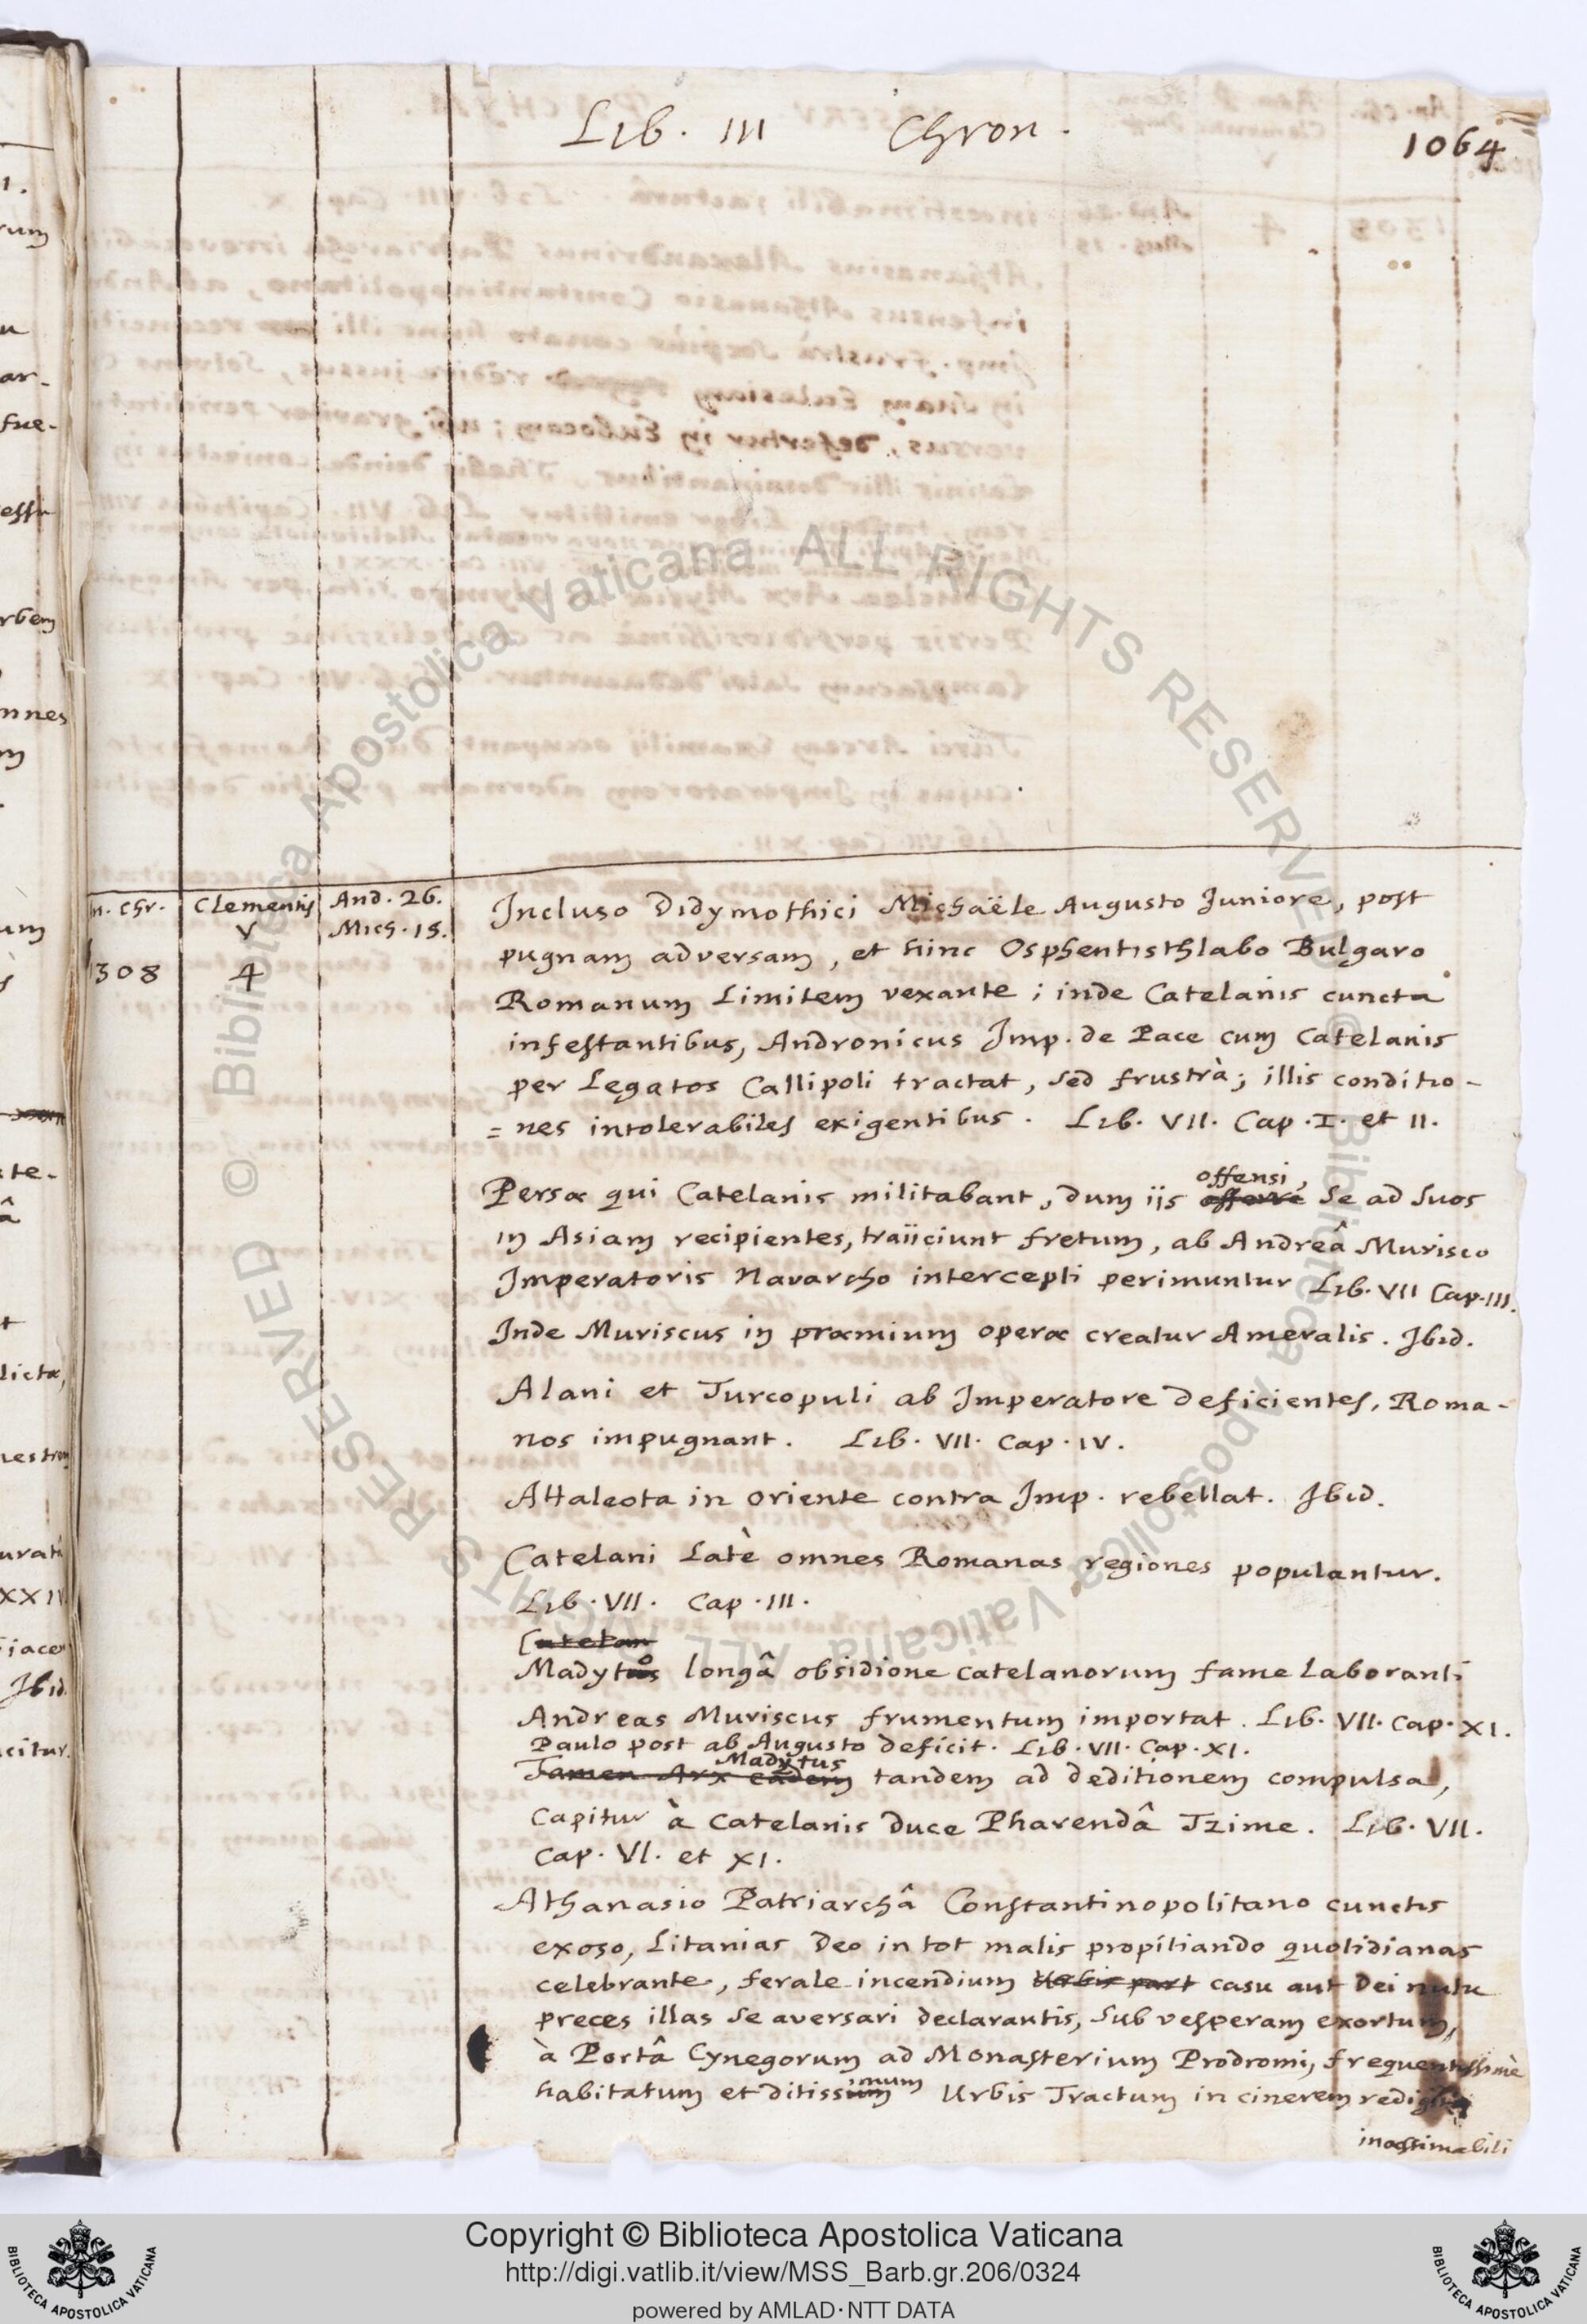 Lib. III Chron.
1064
n. Chr. Clementis V And. 26. Mich. 15.
1308 4
Incluso Didymothici Michaële Augusto Juniore, post
pugnam adversam, et hinc Osphentisthlabo Bulgaro
Romanum Limitem vexante; inde Catelanis cuncta
infestantibus, Andronicus Imp. de Pace cum Catelanis
per Legatos Callipoli tractat, sed frustrà; illis conditio-
=nes intolerabiles exigentibus. Lib. VII. Cap. I. et II.
Persæ qui Catelanis militabant, dum iis offensi, se ad suos
in Asiam recipientes, traiiciunt fretum, ab Andreâ Murisco
Imperatoris Navarcho intercepti perimuntur Lib. VII Cap. III.
Inde Muriscus in præmium operæ creatur Ameralis. Ibid.
Alani et Turcopuli ab Imperatore deficientes, Roma-
nos impugnant. Lib. VII. Cap. IV.
Attaleota in oriente contra Imp. rebellat. Ibid.
Catelani Latè omnes Romanas regiones populantur.
Lib. VII. Cap. III.
Catelan
Madyto longâ obsidione Catelanorum fame Laboranti
Andreas Muriscus frumentum importat. Lib. VII. Cap. XI.
Paulo post ab Augusto deficit. Lib. VII. Cap. XI.
Tamen Arx eadem Madytus tandem ad deditionem compulsa,
Capitur à Catelanis duce Pharendâ Tzime. Lib. VII.
Cap. VI. et XI.
Athanasio Patriarchâ Constantinopolitano cunctis
exoso, Litanias Deo in tot malis propitiando quotidianas
celebrante, ferale incendium Urbis part casu aut Dei nutu
preces illas se aversari declarantis, sub vesperam exortum,
à Portâ Cynegorum ad Monasterium Prodromi, frequentissimè
habitatum et ditissimum Urbis Tractum in cinerem redigit
inæstimabili
© Biblioteca Apostolica Vaticana ALL RIGHTS RESERVED © Biblioteca Apostolica Vaticana ALL RIGHTS RESERVED
BIBLIOTECA APOSTOLICA VATICANA
Copyright © Biblioteca Apostolica Vaticana
http://digi.vatlib.it/view/MSS_Barb.gr.206/0324
powered by AMLAD·NTT DATA
BIBLIOTECA APOSTOLICA VATICANA